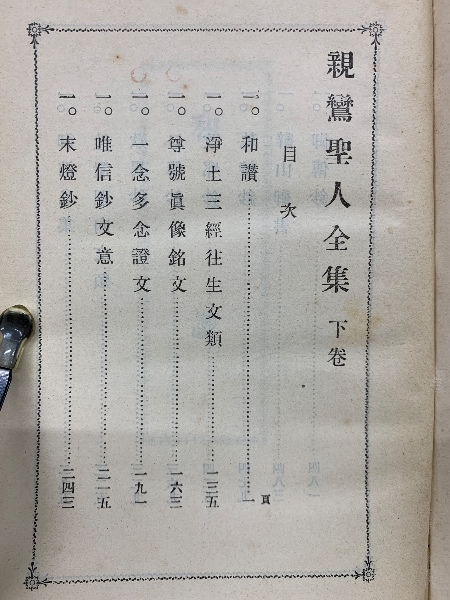 親鸞聖人全集 下卷
目次
頁
一〇和讚…………一
一〇淨土三經往生文類…………一三五
一〇尊號眞像銘文…………一六三
一〇一念多念證文…………一九一
一〇唯信鈔文意…………二一五
一〇末燈鈔…………二四三